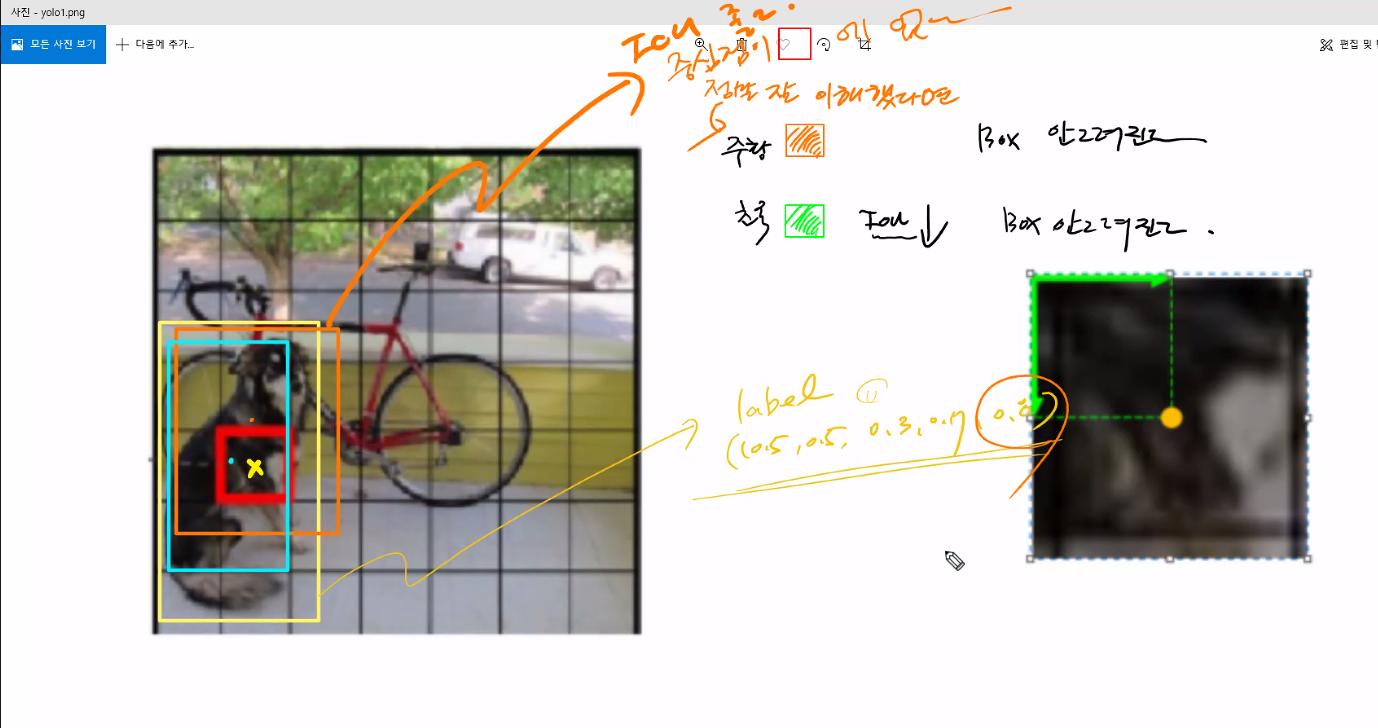 사진 - yolo1.png
모든 사진 보기
다음에 추가...
편집 및
IOU 좋고.
중심점이 에 없
정말 잘 이해했다면
주황 Box 안그려진다
초록 IOU↓ Box 안그려진다.
label
(0.5, 0.5, 0.3, 0.7,
x